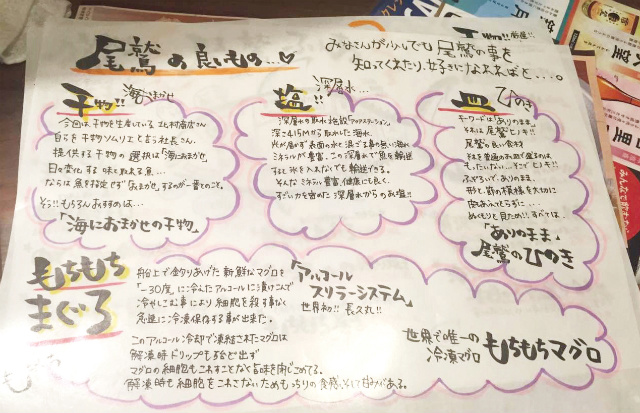 尾鷲の良いもの…♡
みなさんがいつでも尾鷲の事を
知ってくれたり、好きになれればと…。
干物!!
海におまかせ
今回は、干物を生産している北村商店さん
自らを干物ソムリエと言う社長さん。
提供する干物の選択は「海におまかせ」
日々変化する味を取れる魚…
ならば魚を指定せず「おまかせ」するのが一番とのこと。
そう!!もちろんおすすめは…
「海におまかせの干物」
塩!!
深層水…
深層水の取水施設「アクアステーション」
深さ415Mから取水した海水
光が届かず表面の水と混ざる事の無い海水
ミネラルが豊富、この深層水で魚を輸送
すると氷を入れなくても輸送できる。
そんなミネラル豊富、健康にも良く、
すごい力を宿めた深層水からのお塩!!
皿
ひのき
キーワードは「ありのまま」
それは尾鷲ヒノキ!!
尾鷲の良い食材
それを普通のお皿で盛るのは
もったいない…そこでヒノキ!!
ふぞろいで、ありのまま、
形と節の模様を大切に
ぬくもりと見ため!!すべては、
「ありのまま」
尾鷲のひのき
もちもち
まぐろ
船上で釣りあげた新鮮なマグロを
「−30度」に冷えたアルコールに漬けこんで
冷やしこむ事により細胞を殺す事なく
急速に冷凍保存する事が出来た。
このアルコール冷却で凍結されたマグロは
解凍時ドリップもほとんど出ず
マグロの細胞もこわすことなく旨味を閉じこめてる。
解凍時も細胞をこわさないためもっちりの食感、そして甘みがある。
「アルコール
スリラーシステム」
世界初!!長久丸!!
世界で唯一の
冷凍マグロ
もちもちマグロ